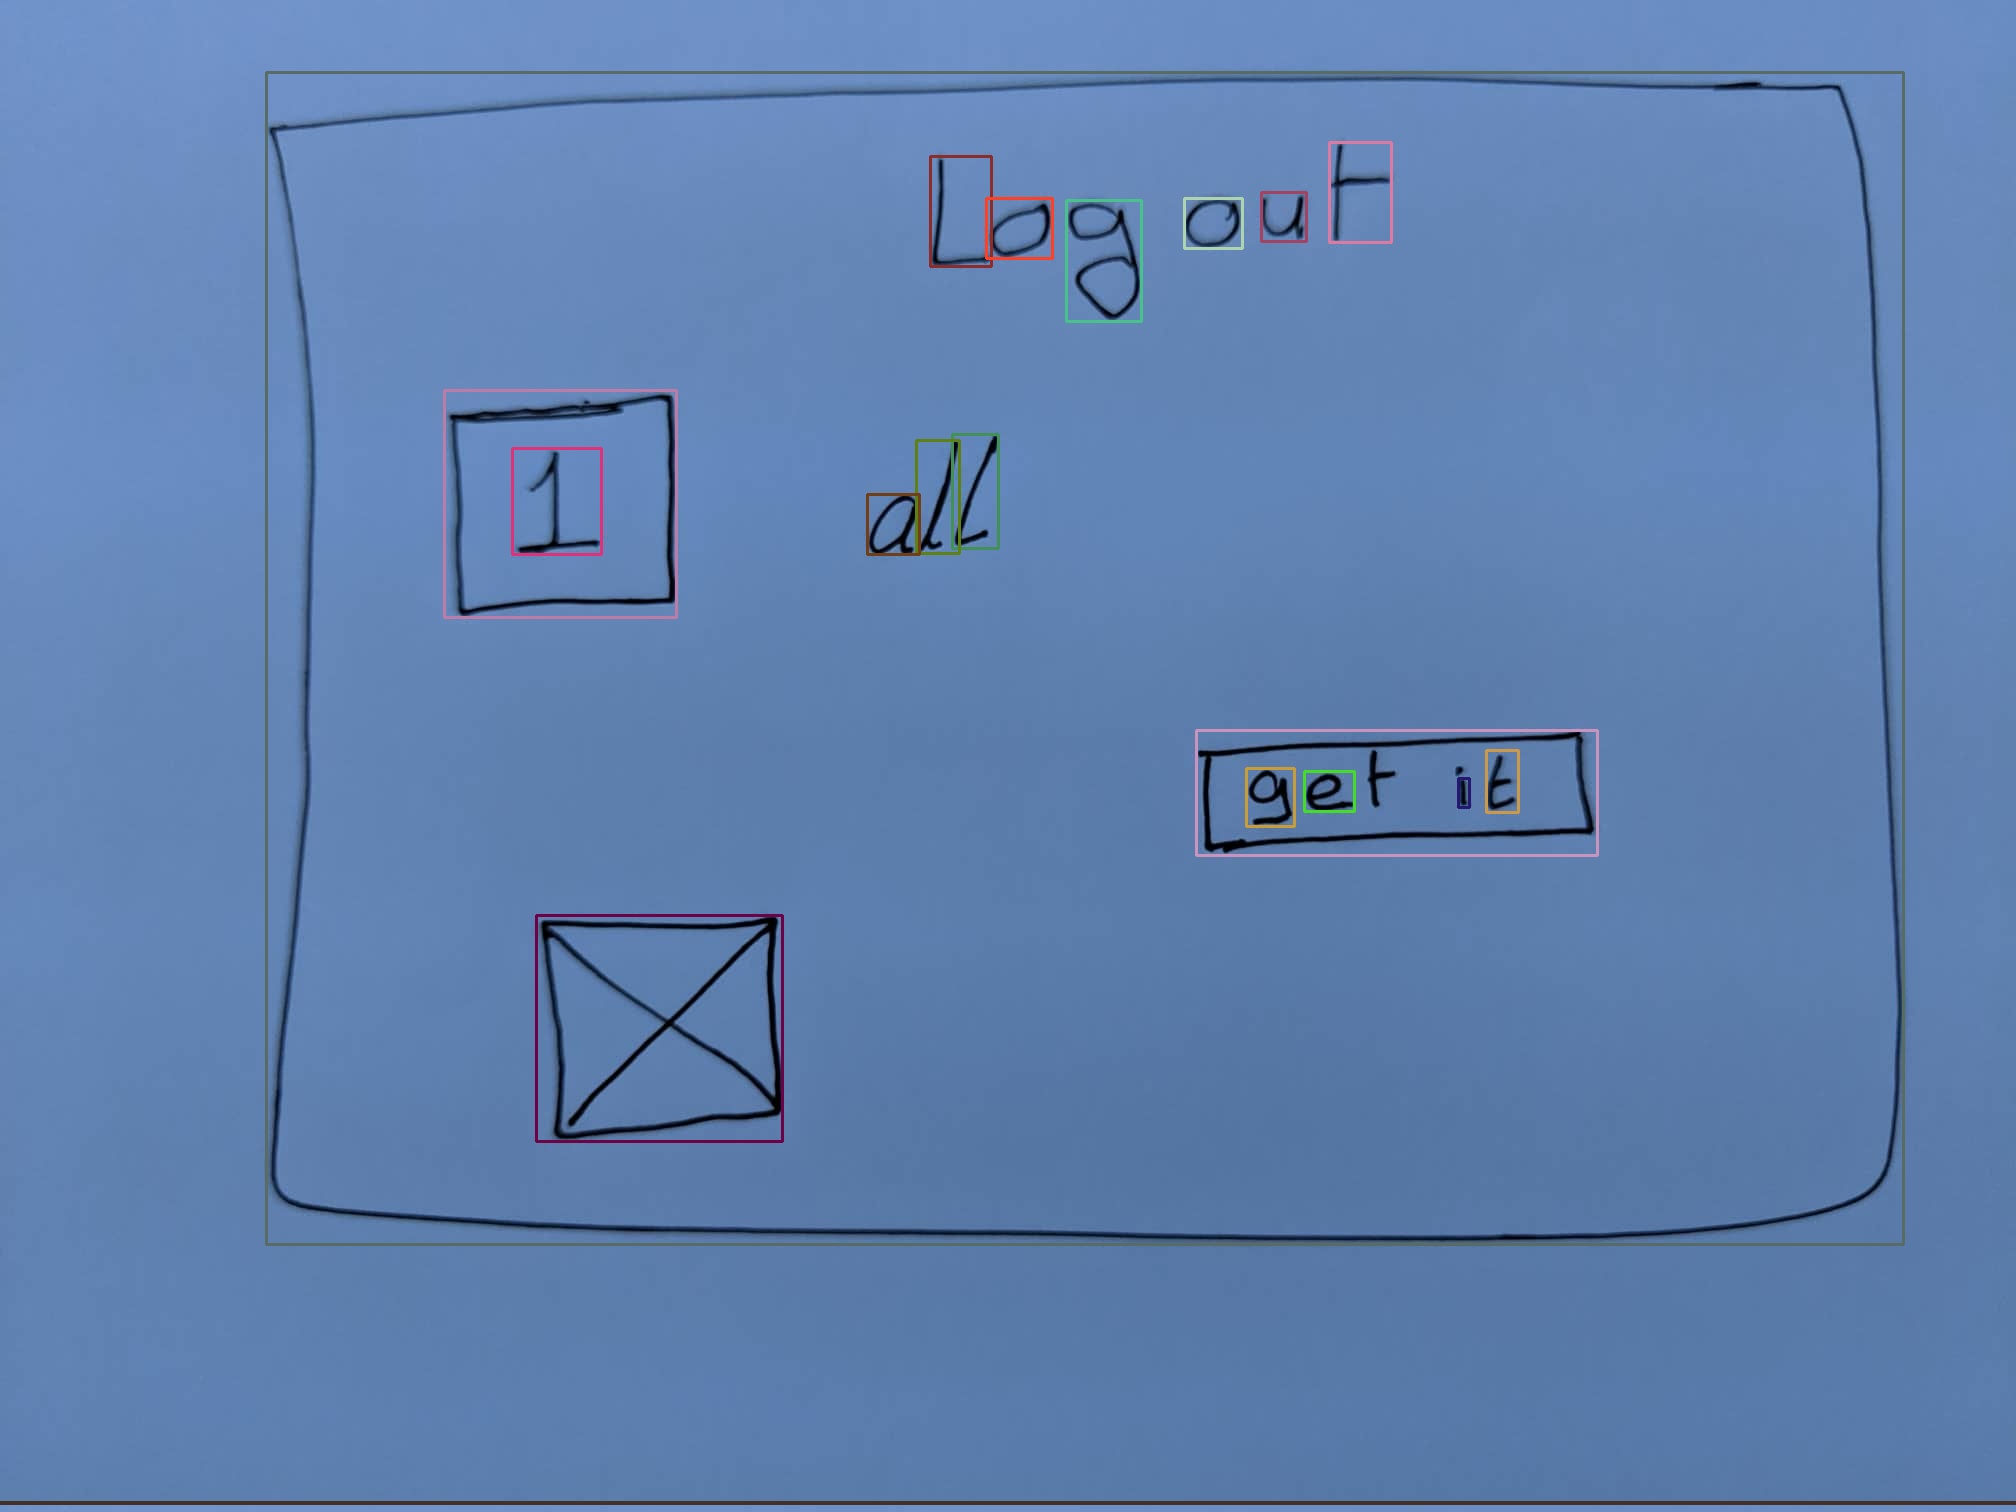 Log out
1
all
get it